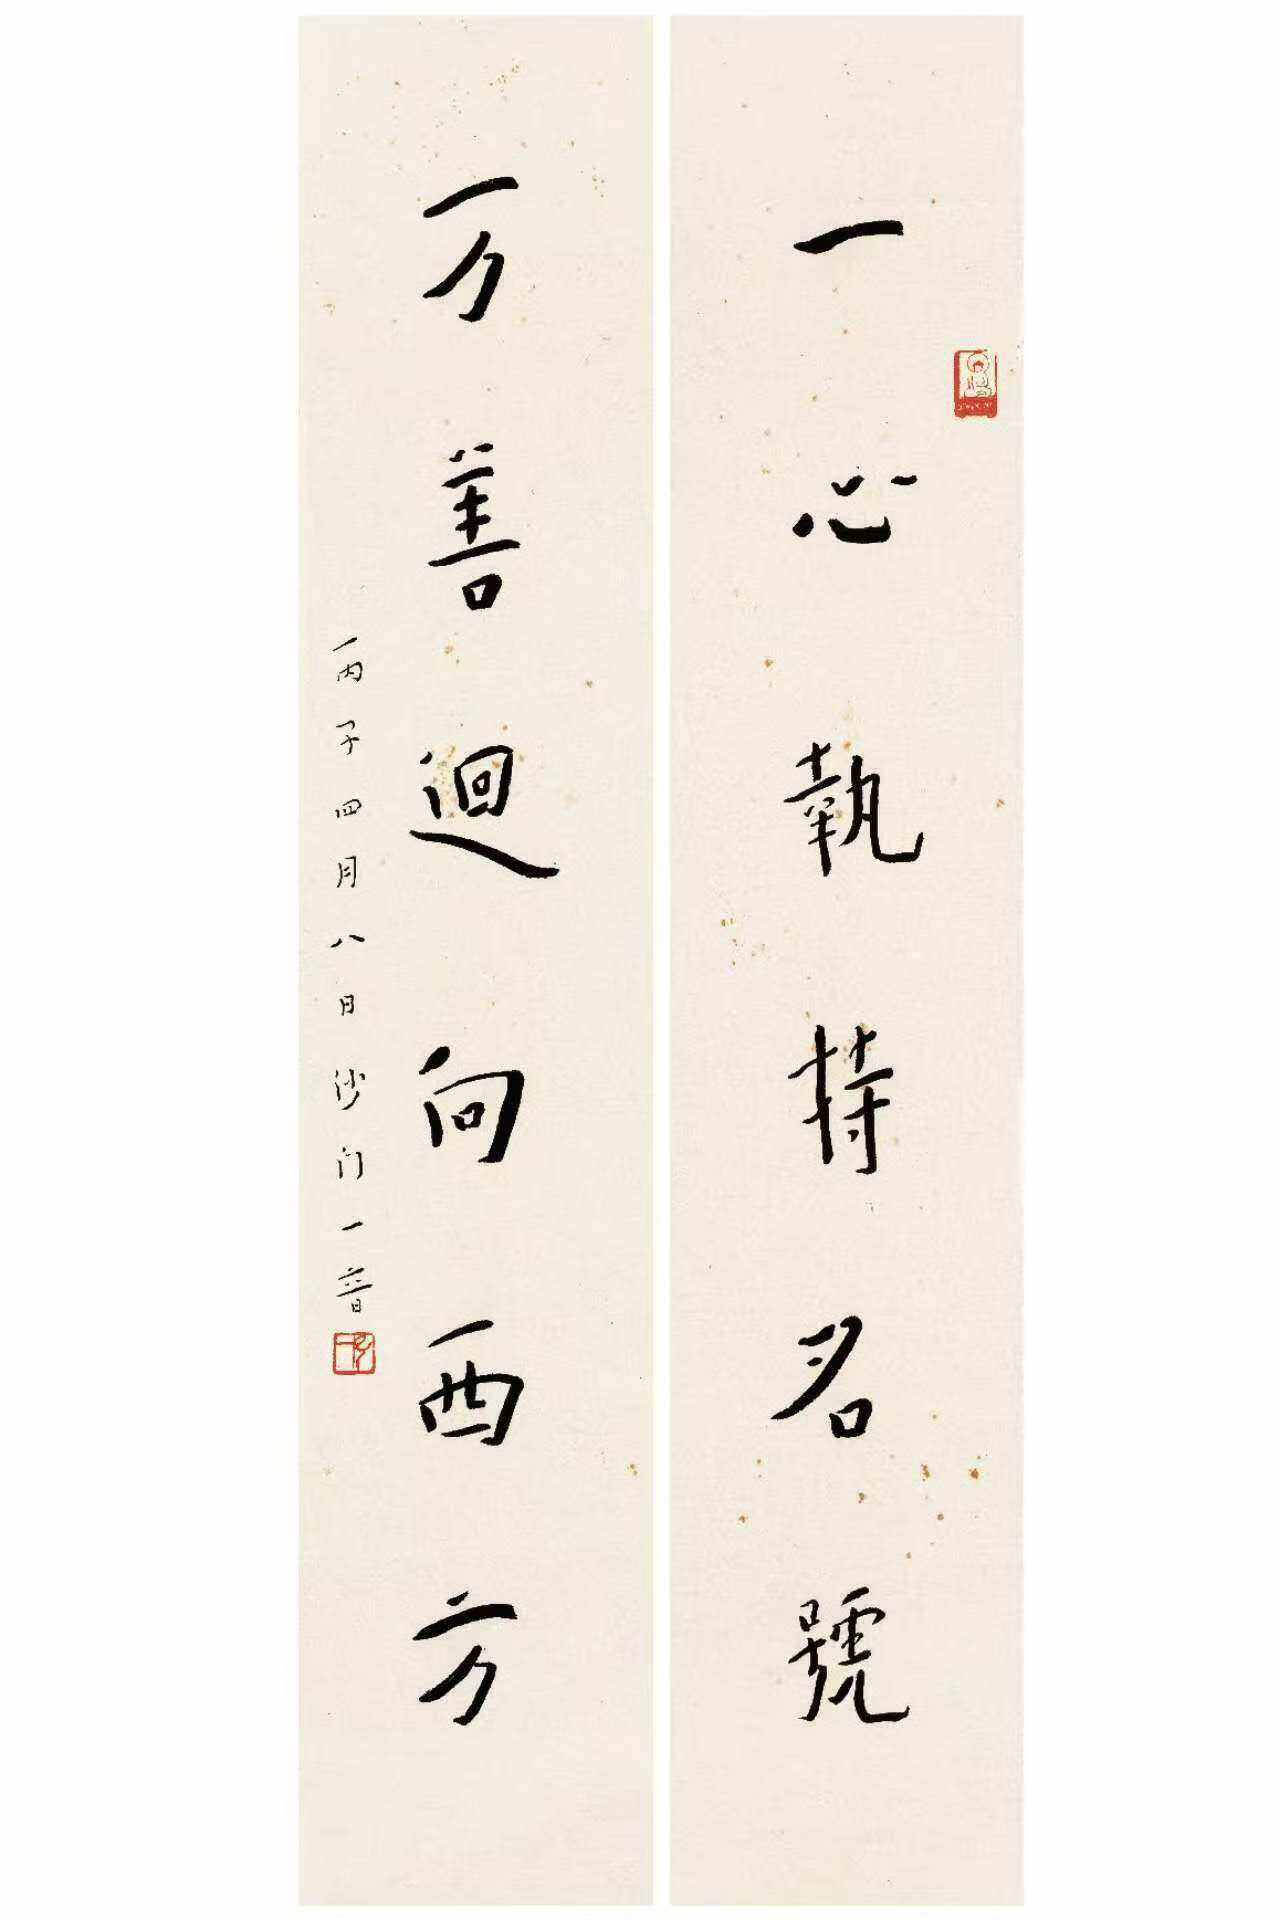 一心執持名號
万善迴向西方
丙子四月八日沙门一音